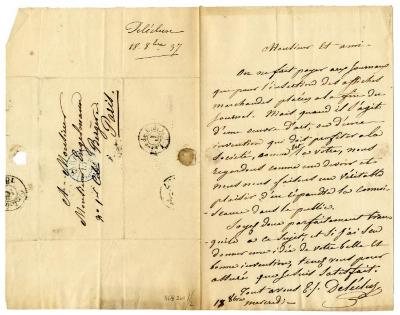 Delécluze
18 8bre 37
A Monsieur
Monsieur Engelmann
Cité Bergère
Paris
Monsieur et ami.
On ne fait payer aux Journaux
que pour l'insertion des affiches
marchandes placées à la fin du
journal. Mais quand il s'agit
d'une œuvre d'art, ou d'une
invention qui doit profiter à la
société, comme la votre, nous
regardons comme un devoir et
nous nous faisons un véritable
plaisir d'en répandre la connois-
sance dans le public.
Soyez donc parfaitement tran-
quille à ce sujet, et si j'ai su
donner une idée de votre belle et
bonne invention, tenez vous pour
assuré que je suis satisfait.
Tout à vous E. J. Delécluze
18 8bre
mercredi